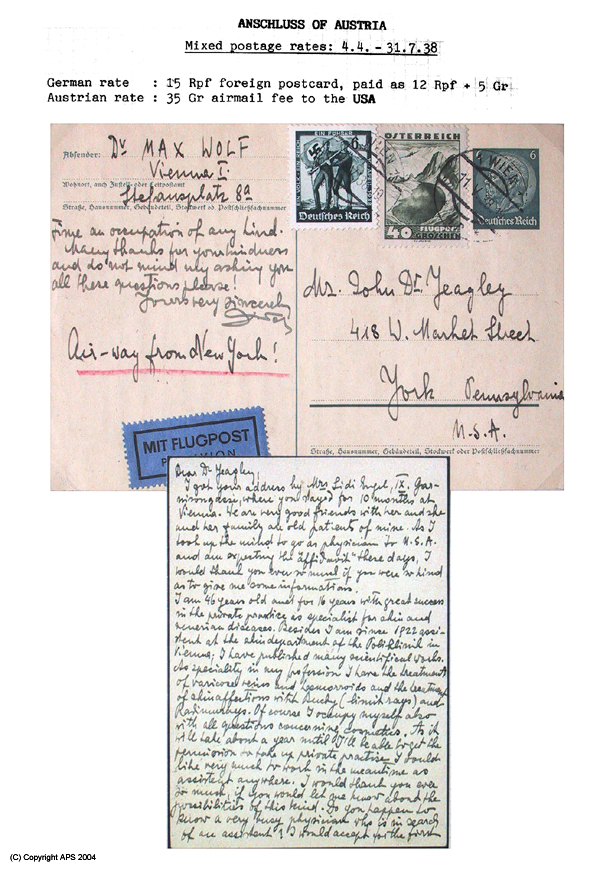 ANSCHLUSS OF AUSTRIA
Mixed postage rates: 4.4. - 31.7.38
German rate : 15 Rpf foreign postcard, paid as 12 Rpf + 5 Gr
Austrian rate : 35 Gr airmail fee to the USA
Absender: Dr MAX WOLF
Vienna I
Wohnort, auch Zustell- oder Leitpostamt
Stefansplatz 8a
Straße, Hausnummer, Gebäudeteil, Stockwerk od. Postschließfachnummer
time an occupation of any kind.
Many thanks for your kindness
and do not mind my asking you
all these questions please!
Yours very sincerely
Air-way from New York!
MIT FLUGPOST
PAR AVION
6
Deutsches Reich
ÖSTERREICH
FLUGPOST
40 GROSCHEN
WIEN
6
Deutsches Reich
Mr. John Dr. Yeagley
418 W. Market Street
York Pennsylvania
U.S.A.
Straße, Hausnummer, Gebäudeteil, Stockwerk oder Postschließfachnummer
Dear Dr Yeagley,
I got your address by Mrs Lidi Engel, IX. Gar-
nisongasse, where you stayed for 10 months at
Vienna. We are very good friends with her and she
and her family an old patient of mine. As I
took up the mind to go as physician to U.S.A.
and am expecting the "affidavit" these days, I
would thank you ever so much if you were so kind
as to give me some informations.
I am 46 years old and for 16 years with great success
in the private practice as specialist for skin and
venerian diseases. Besides I am since 1922 assi-
stent at the skin department of the Poliklinik in
Vienna; I have published many scientifical works.
As speciality in my profession I have the treatment
of varicose veins and hemorroids and the treatment
of skin affections with Bucky (-limit rays) and
Radiumrays. Of course I occupy myself also
with all questions concerning cosmetics. As it
will take about a year until I'll be able to get the
permission to take up private practise I should
like very much to work in the meantime as
assistent anywhere. I would thank you ever
so much, if you would let me know about the
possibilities of this kind. Do you happen to
know a very busy physician who is in search
of an assistent? I would accept for the first
(C) Copyright APS 2004